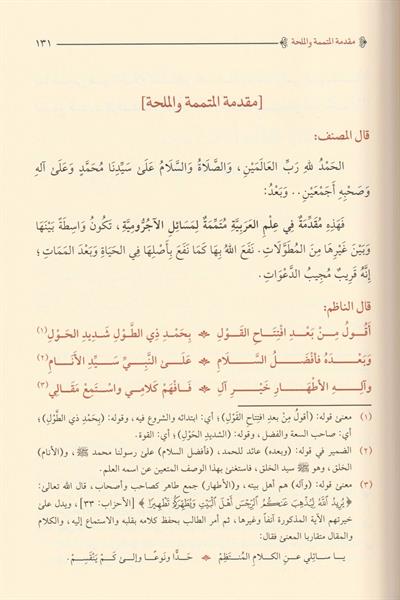 مقدمة المتممة والملحة ١٣١
[مقدمة المتممة والملحة]
قال المصنف:
الحَمْدُ للهِ رَبِّ العَالَمَيْنِ، وَالصَّلَاةُ وَالسَّلَامُ عَلَىٰ سَيِّدِنَا مُحَمَّدٍ وَعَلَىٰ آلِهِ
وَصَحْبِهِ أَجْمَعَيْنِ.. وَبَعْدُ:
فَهَذِهِ مُقَدِّمَةٌ فِي عِلْمِ العَرَبِيَّةِ مُتَمِّمَةٌ لِمَسَائِلِ الآجُرُّومِيَّةِ، تَكُونُ وَاسِطَةً بَيْنَهَا
وَبَيْنَ غَيْرِهَا مِنَ المُطَوَّلَاتِ. نَفَعَ اللهُ بِهَا كَمَا نَفَعَ بِأَصْلِهَا فِي الحَيَاةِ وَبَعْدَ المَمَاتِ؛
إِنَّهُ قَرِيبٌ مُجِيبُ الدَّعَوَاتِ.
قال الناظم:
أَقُولُ مِنْ بَعْدِ افْتِتَاحِ القَوْلِ بِحَمْدِ ذِي الطَّوْلِ شَدِيدِ الحَوْلِ(١)
وَبَعْدَهُ فَأَفْضَلُ السَّلَامِ عَلَىٰ النَّبِيِّ سَيِّدِ الأَنَامِ(٢)
وَآلِهِ الأَطْهَارِ خَيْرِ آلِ فَافْهَمْ كَلَامِي وَاسْتَمِعْ مَقَالِي(٣)
(١) معنىٰ قوله: (أقولُ مِنْ بعدِ افتِتاحِ القَوْلِ)؛ أي: ابتدائه والشروع فيه، وقوله: (بِحمدِ ذي الطَّوْلِ)؛
أي: صاحب السعة والفضل، وقوله: (الشديدِ الحَوْلِ)؛ أي: القوة.
(٢) الضمير في قوله: (وبعده) عائد للحمد، (فأفضل السلام) علىٰ رسولنا محمد ﷺ، و(الأنام)
الخلق، وهو ﷺ سيد الخلق، فاستغنىٰ بهذا الوصف المتعين عن اسمه العلم.
(٣) معنىٰ قوله: (وآله) هم أهل بيته، و(الأطهار) جمع طاهر كصاحب وأصحاب، قال الله تعالىٰ:
﴿يُرِيدُ اللَّهُ لِيُذْهِبَ عَنكُمُ الرِّجْسَ أَهْلَ الْبَيْتِ وَيُطَهِّرَكُمْ تَطْهِيرًا﴾ [الأحزاب: ٣٣]، ويدل علىٰ
خيرتهم الآية المذكورة آنفاً وغيرها، ثم أمر الطالب بحفظ كلامه بقلبه والاستماع إليه، والكلام
والمقال متقاربا المعنىٰ فقال:
يـا سـائلي عـن الكـلامِ المُنتَظِمْ حَـدًّا ونَوعًـا وإلـىٰ كَـمْ يَنْقَسِمْ.